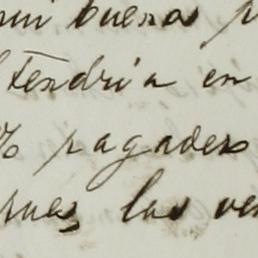 buenas
tendria en
% pagadero
pues, las